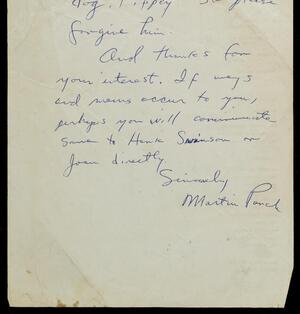 forgive him.
And thanks for
your interest. If ways
and means occur to you,
perhaps you will communicate
same to Hank Swinson or
Joan directly
Sincerely
Martin Ponch